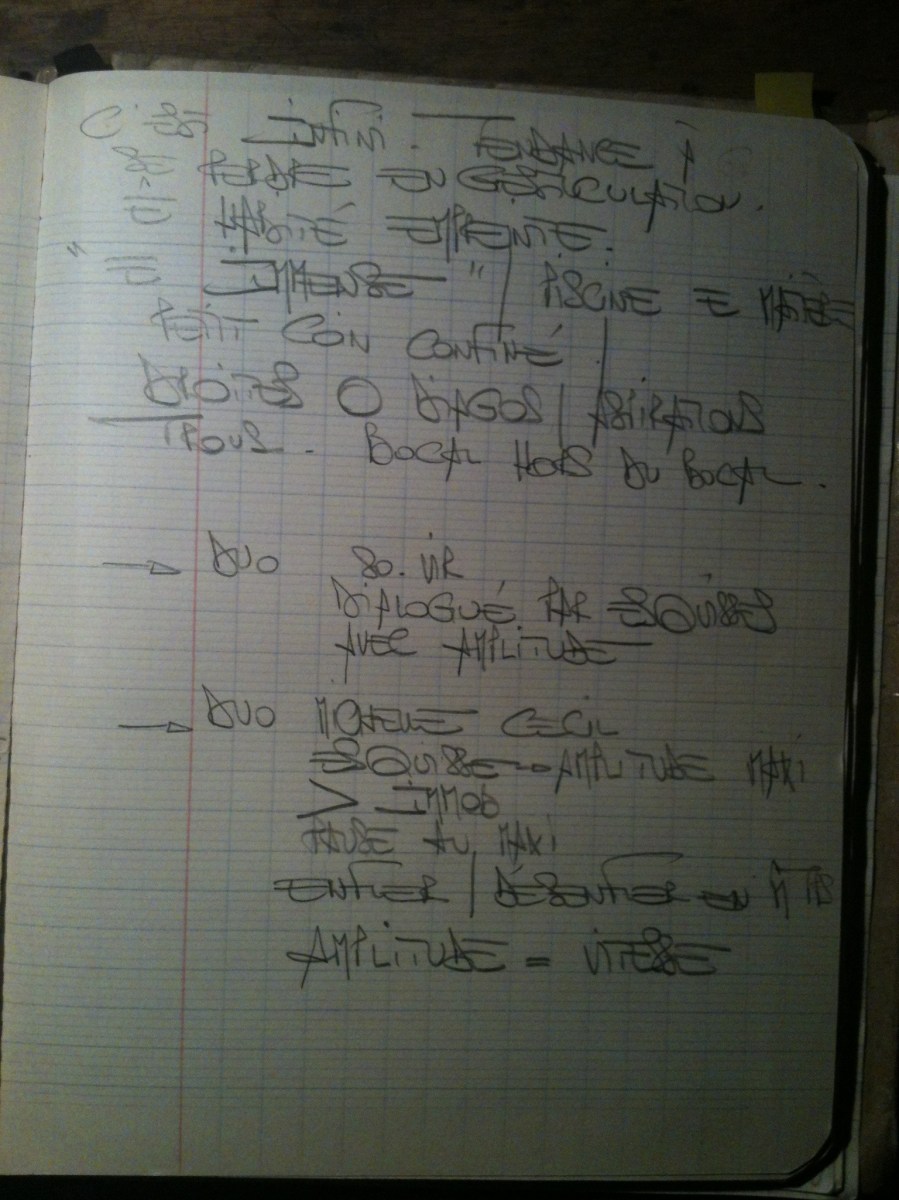 C'est INFINI. TENDANCE À
PERTE DE GESTICULATION.
" DE IMMENSE " | PISCINE
PETIT COIN CONFINÉ |
DROITES O DIAGOS | ASPIRATIONS
TROUS. BOCAL HORS DU BOCAL.
→ DUO SO. VIR
DIALOGUÉ PAR ESQUISSES
AVEC AMPLITUDE
→ DUO CECIL
ESQUISSE → AMPLITUDE MAXI
> IMMOB
PAUSE AU MAXI
ENFLER | DÉSENFLER EN
AMPLITUDE = VITESSE